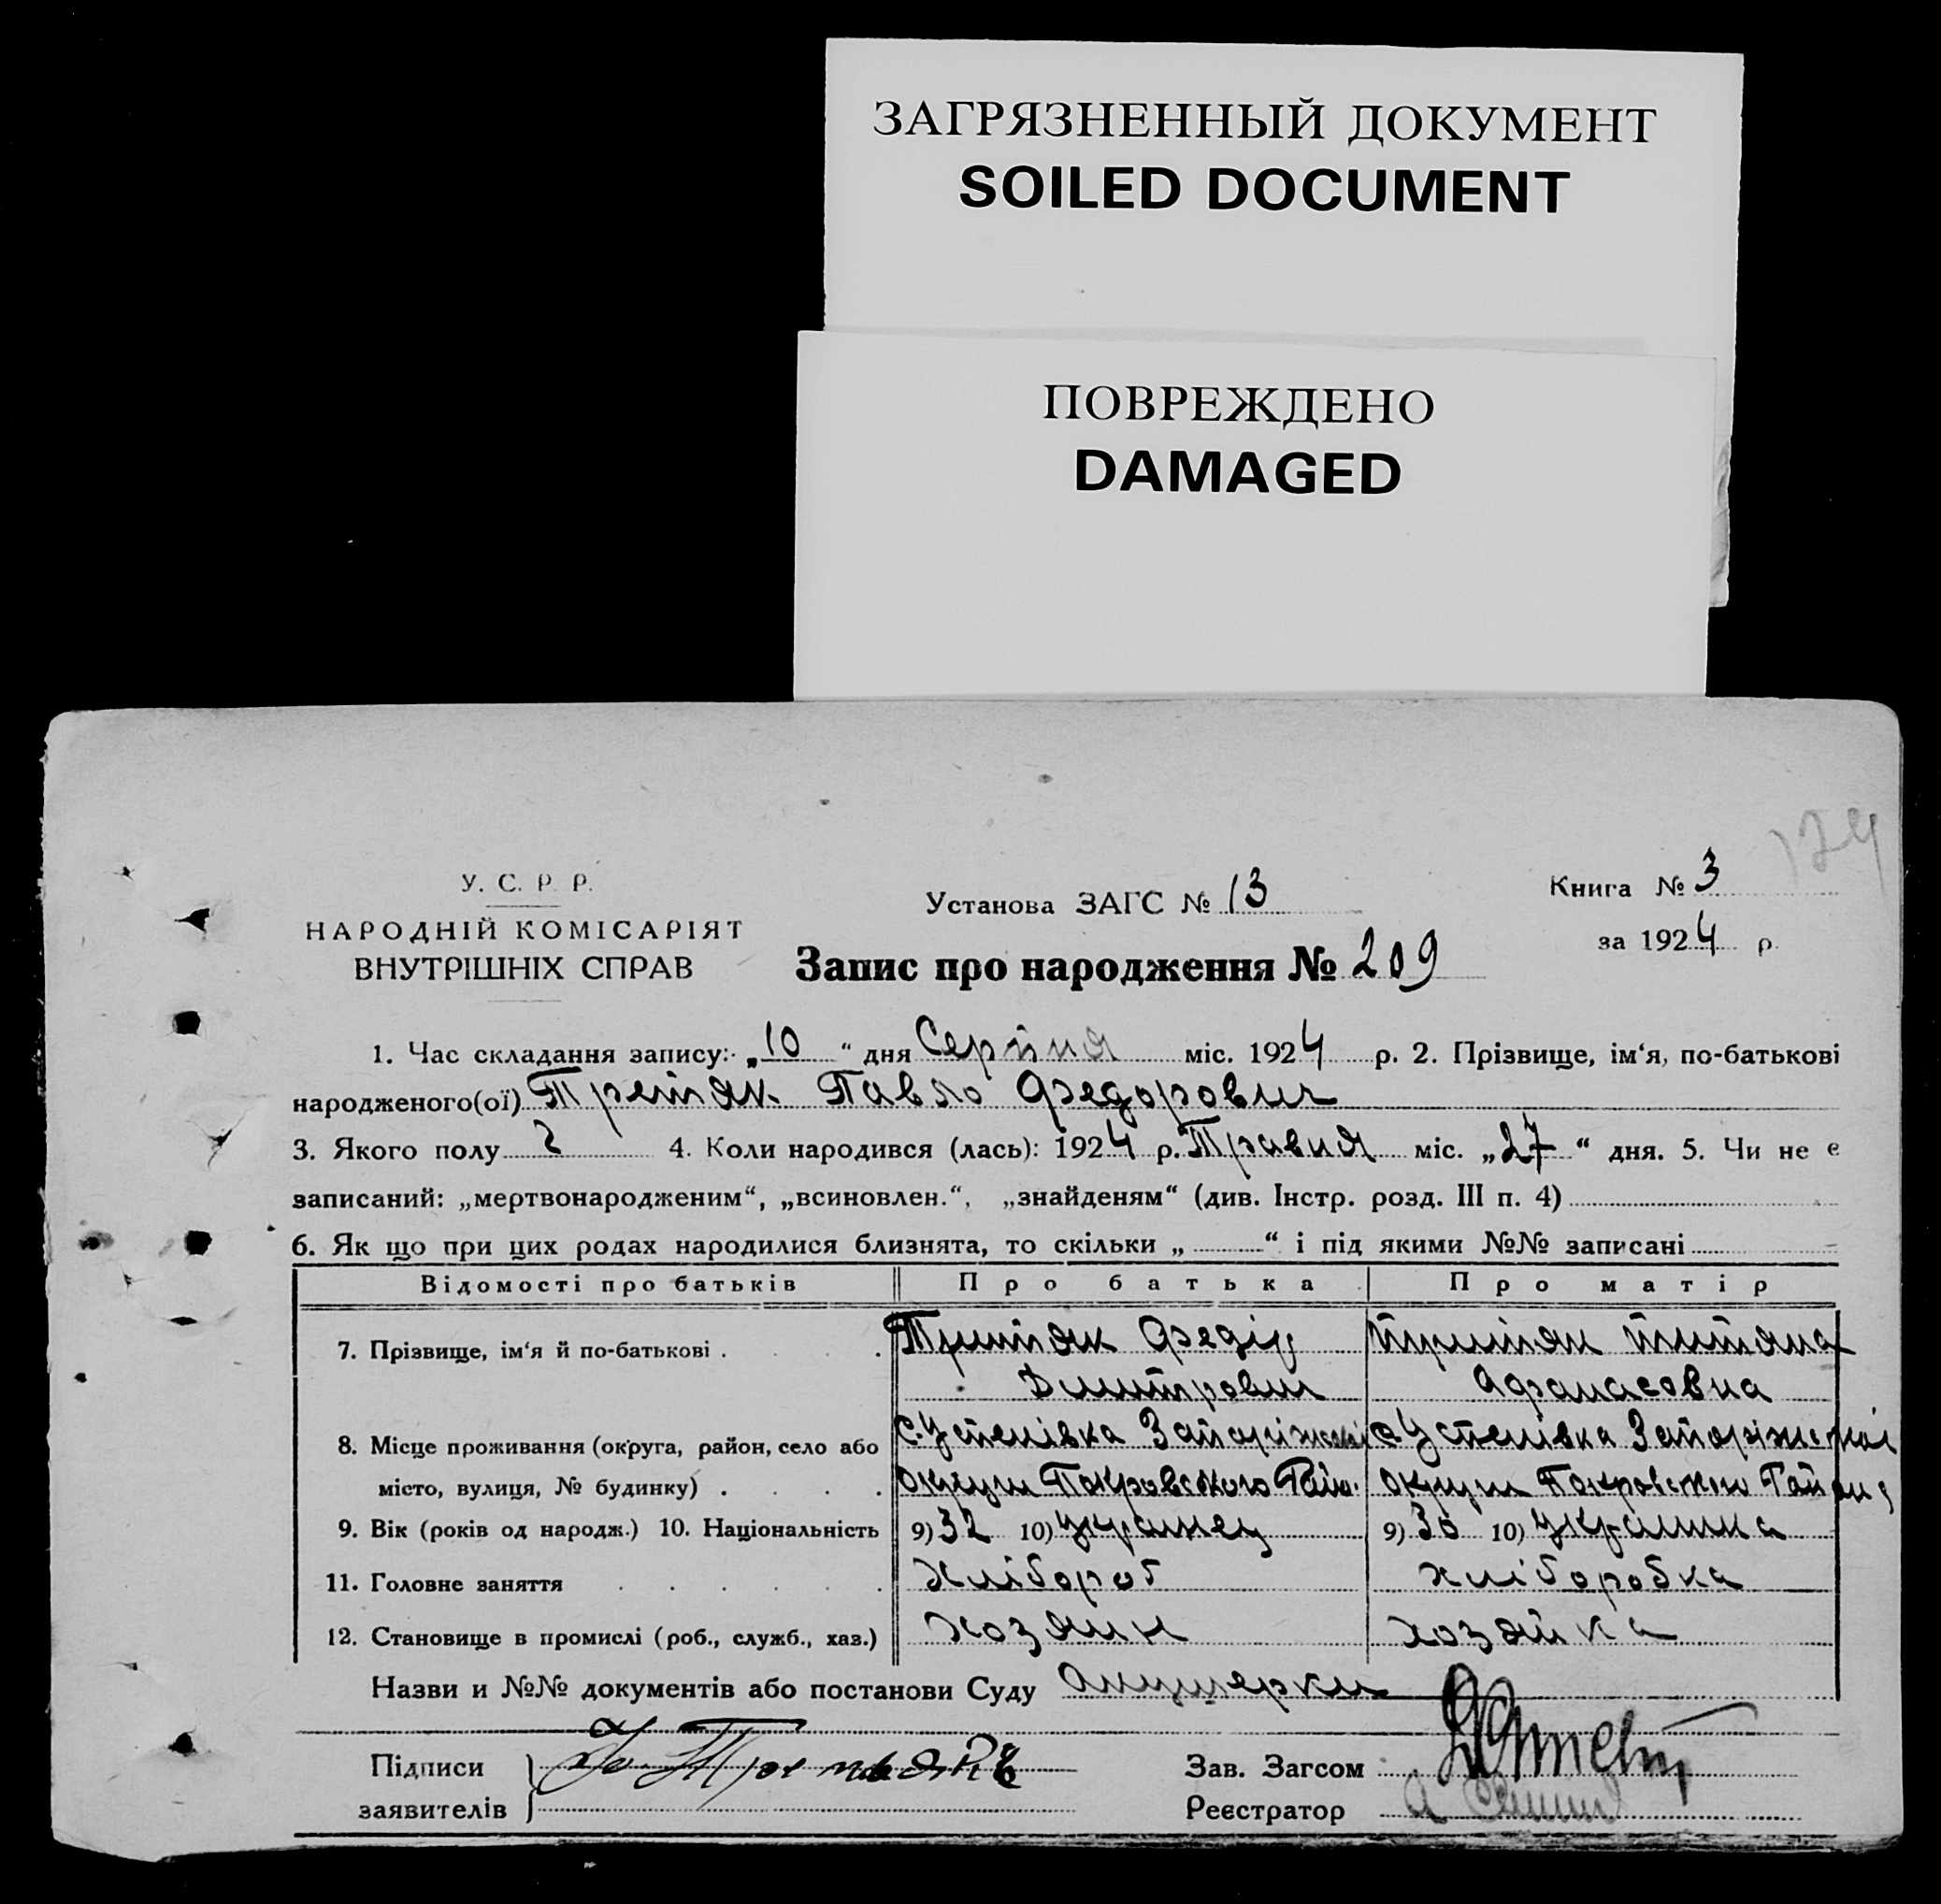 ЗАГРЯЗНЕННЫЙ ДОКУМЕНТ
SOILED DOCUMENT
ПОВРЕЖДЕНО
DAMAGED
174
У. С. Р. Р.
НАРОДНІЙ КОМІСАРІЯТ
ВНУТРІШНІХ СПРАВ
Установа ЗАГС № 13
Книга № 3
за 1924 р.
Запис про народження № 209
1. Час складання запису: „10“ дня Серпня міс. 1924 р. 2. Прізвище, ім‘я, по-батькові
народженого(ої) Третяк Павло Федорович
3. Якого полу ч 4. Коли народився (лась): 1924 р. Травня міс. „27“ дня. 5. Чи не є
записаний: „мертвонародженим“, „всиновлен.“, „знайденям“ (див. Інстр. розд. III п. 4)
6. Як що при цих родах народилися близнята, то скільки „ “ і під якими №№ записані
Відомості про батьків Про батька Про матір
7. Прізвище, ім‘я й по-батькові . . . . Третяк Федір Третяк Титяна
Димитрович Афанасовна
8. Місце проживання (округа, район, село або с. Успенівка Запоріжської с. Успенівка Запоріжської
місто, вулиця, № будинку) . . . . округи Покровського Райо. округи Покровського Району
9. Вік (років од народж.) 10. Національність 9) 32 10) Українец 9) 30 10) Українка
11. Головне заняття . . . . . . Хлібороб хліборобка
12. Становище в промислі (роб., служб., хаз.) хозяин хозяйка
Назви и №№ документів або постанови Суду Акушерки
Підписи Третьякъ Зав. Загсом
заявителів Реєстратор